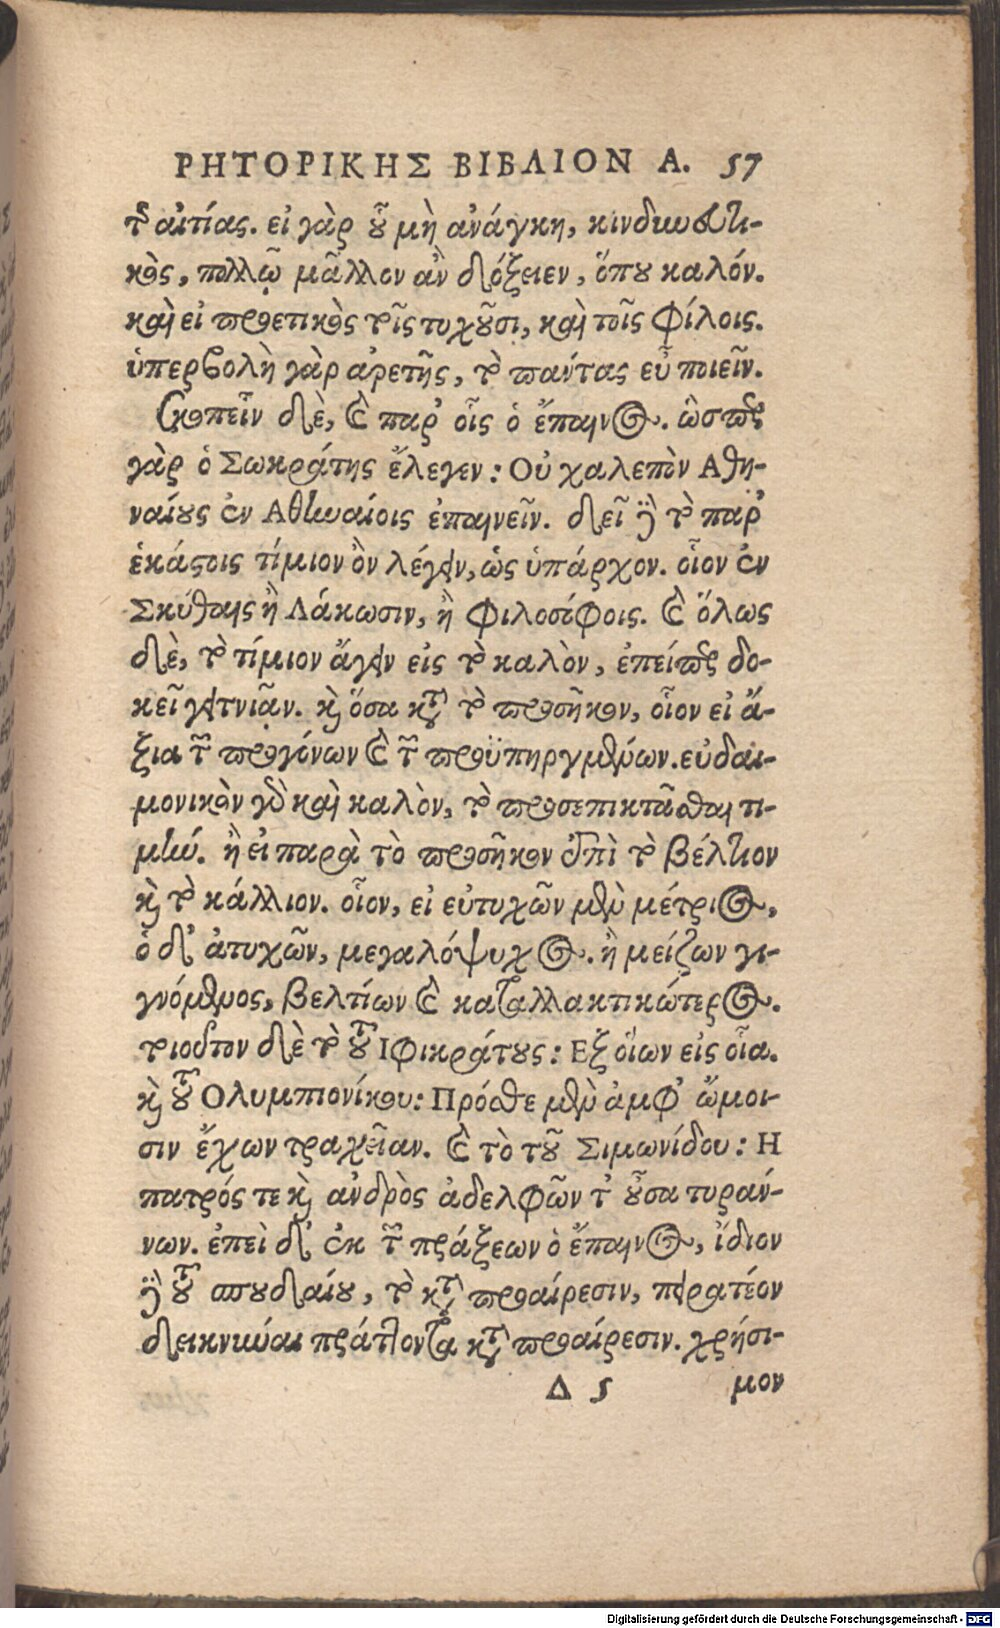 ΡΗΤΟΡΙΚΗΣ ΒΙΒΛΙΟΝ Α. 57
τ αἰτίας. εἰ γὰρ οὗ μὴ ἀνάγκη, κινδυνευτι-
κὸς, πολλῷ μᾶλλον ἂν δόξειεν, ὅπου καλόν.
καὶ εἰ προετικὸς τοῖς τυχοῦσι, καὶ τοῖς φίλοις.
ὑπερβολὴ γὰρ ἀρετῆς, τὸ πάντας εὖ ποιεῖν.
Σκοπεῖν δὲ, καὶ παρ' οἷς ὁ ἔπαινος. ὥσπερ
γὰρ ὁ Σωκράτης ἔλεγεν: Οὐ χαλεπὸν Αθη-
ναίους ἐν Αθηναίοις ἐπαινεῖν. δεῖ δὲ τὸ παρ'
ἑκάστοις τίμιον ὂν λέγειν, ὡς ὑπάρχον. οἷον ἐν
Σκύθαις ἢ Λάκωσιν, ἢ φιλοσόφοις. καὶ ὅλως
δὲ, τὸ τίμιον ἄγειν εἰς τὸ καλὸν, ἐπείπερ δο-
κεῖ γειτνιᾷν. καὶ ὅσα κατὰ τὸ προσῆκον, οἷον εἰ ἄ-
ξια τῶν προγόνων καὶ τῶν προϋπηργμένων. εὐδαι-
μονικὸν γὰρ καὶ καλὸν, τὸ προσεπικτᾶσθαι τι-
μήν. ἢ εἰ παρὰ τὸ προσῆκον ἐπὶ τὸ βέλτιον
καὶ τὸ κάλλιον. οἷον, εἰ εὐτυχῶν μὲν μέτριος,
ὁ δ' ἀτυχῶν, μεγαλόψυχος. ἢ μείζων γι-
γνόμενος, βελτίων καὶ καταλλακτικώτερος.
τοιοῦτον δὲ τὸ τοῦ Ιφικράτους: Εξ οἵων εἰς οἷα.
καὶ τοῦ Ολυμπιονίκου: Πρόσθε μὲν ἀμφ' ὤμοι-
σιν ἔχων τραχεῖαν. καὶ τὸ τοῦ Σιμωνίδου: Η
πατρός τε καὶ ἀνδρὸς ἀδελφῶν τ' οὖσα τυράν-
νων. ἐπεὶ δ' ἐκ τῶν πράξεων ὁ ἔπαινος, ἴδιον
δὲ τοῦ σπουδαίου, τὸ κατὰ προαίρεσιν, πειρατέον
δεικνύναι πράττοντα κατὰ προαίρεσιν. χρήσι-
Δ 5 μον
Digitalisierung gefördert durch die Deutsche Forschungsgemeinschaft - DFG